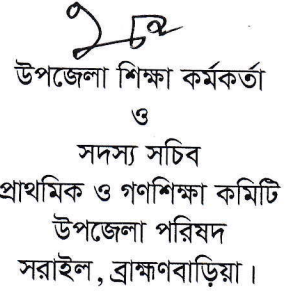 উপজেলা শিক্ষা কর্মকর্তা
ও
সদস্য সচিব
প্রাথমিক ও গণশিক্ষা কমিটি
উপজেলা পরিষদ
সরাইল, ব্রাহ্মণবাড়িয়া।